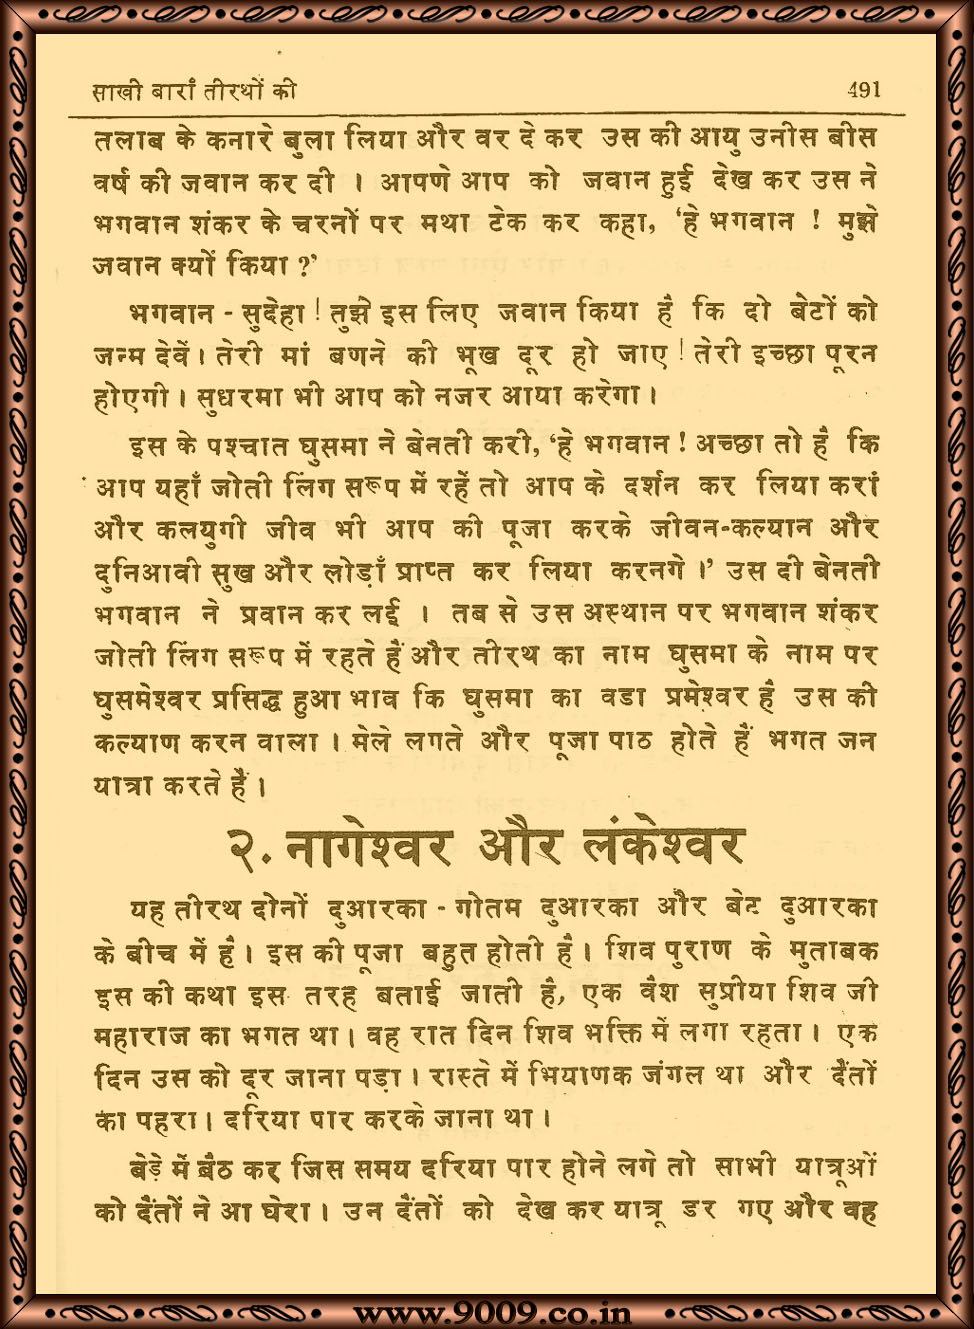 साखी बाराँ तीरथों की 491
तलाब के कनारे बुला लिया और वर दे कर उस की आयु उनीस बीस
वर्ष की जवान कर दी । आपणे आप को जवान हुई देख कर उस ने
भगवान शंकर के चरनों पर मथा टेक कर कहा, ‘हे भगवान ! मुझे
जवान क्यों किया ?’
भगवान - सुदेहा ! तुझे इस लिए जवान किया है कि दो बेटों को
जन्म देवें। तेरी मां बणने की भूख दूर हो जाए ! तेरी इच्छा पूरन
होएगी । सुधरमा भी आप को नजर आया करेगा ।
इस के पश्चात घुसमा ने बेनती करी, ‘हे भगवान ! अच्छा तो है कि
आप यहाँ जोती लिंग सरूप में रहें तो आप के दर्शन कर लिया करां
और कलयुगी जीव भी आप की पूजा करके जीवन-कल्यान और
दुनिआवी सुख और लोड़ाँ प्राप्त कर लिया करनगे ।’ उस दी बेनती
भगवान ने प्रवान कर लई । तब से उस अस्थान पर भगवान शंकर
जोती लिंग सरूप में रहते हैं और तीरथ का नाम घुसमा के नाम पर
घुसमेश्वर प्रसिद्ध हुआ भाव कि घुसमा का वडा प्रमेश्वर है उस की
कल्याण करन वाला । मेले लगते और पूजा पाठ होते हैं भगत जन
यात्रा करते हैं ।
२. नागेश्वर और लंकेश्वर
यह तीरथ दोनों दुआरका - गोतम दुआरका और बेट दुआरका
के बीच में है । इस की पूजा बहुत होती है । शिव पुराण के मुताबक
इस की कथा इस तरह बताई जाती है, एक वैश सुप्रीया शिव जी
महाराज का भगत था । वह रात दिन शिव भक्ति में लगा रहता । एक
दिन उस को दूर जाना पड़ा । रास्ते में भियाणक जंगल था और दैंतों
का पहरा । दरिया पार करके जाना था ।
बेड़े में बैठ कर जिस समय दरिया पार होने लगे तो साभी यात्रूओं
को दैंतों ने आ घेरा । उन दैंतों को देख कर यात्रू डर गए और वह
www.9009.co.in